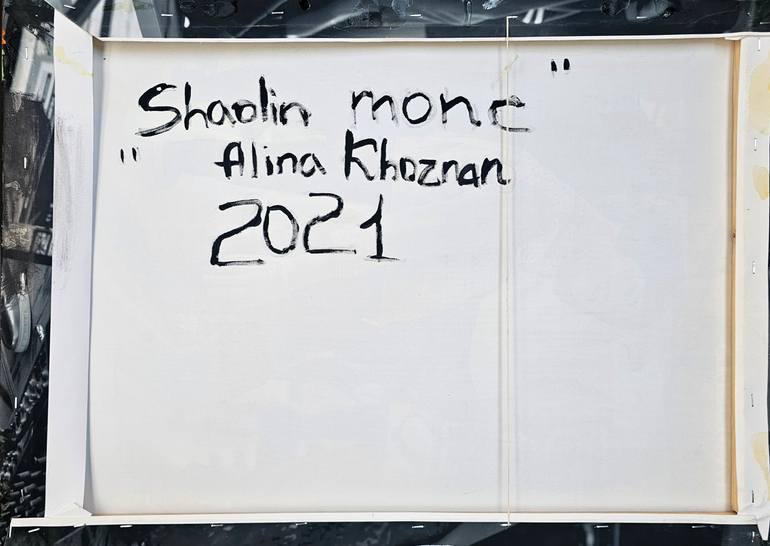 "Shaolin monc"
Alina Khoznan
2021